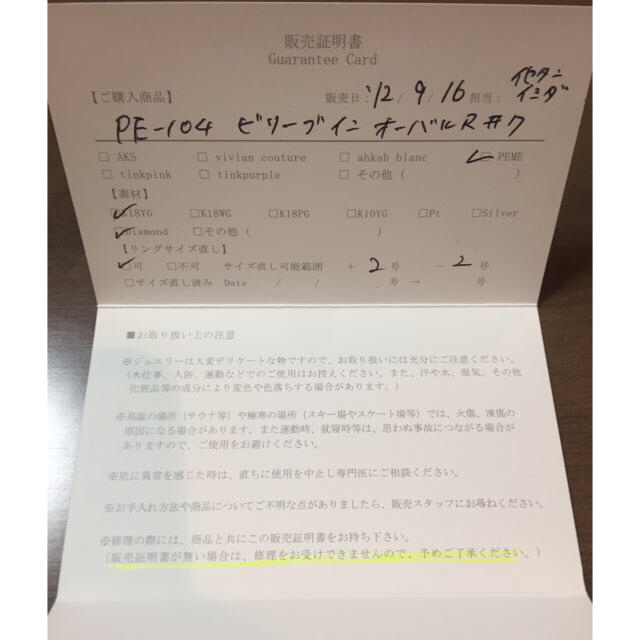 販売証明書
Guarantee Card
【ご購入商品】 販売日：'12/ 9/ 16 担当：イセタン イシダ
PE-104 ビリーブイン オーバルR #7
□ AKS □ vivian couture □ ahkah blanc ☑ PEME
□ tinkpink □ tinkpurple □ その他 ( )
【素材】
☑K18YG □K18WG □K18PG □K10YG □Pt □Silver
☑Diamond □その他 ( )
【リングサイズ直し】
☑可 □不可 サイズ直し可能範囲 ＋ 2 号 － 2 号
□サイズ直し済み Date / / 号 → 号
■お取り扱い上の注意
※ジュエリーは大変デリケートな物ですので、お取り扱いには充分にご注意ください。
(水仕事、入浴、運動などでのご使用はお控えください。また、汗や水、湿気、その他
化粧品等の成分により変色や色落ちする場合があります。)
※高温の場所（サウナ等）や極寒の場所（スキー場やスケート場等）では、火傷、凍傷の
原因になる場合があります。また運動時、就寝時等は、思わぬ事故につながる場合が
ありますので、ご使用をお避けください。
※肌に異常を感じた時は、直ちに使用を中止し専門医にご相談ください。
※お手入れ方法や商品についてご不明な点がありましたら、販売スタッフにお尋ねください。
※修理の際には、商品と共にこの販売証明書をお持ち下さい。
(販売証明書が無い場合は、修理をお受けできませんので、予めご了承ください。)